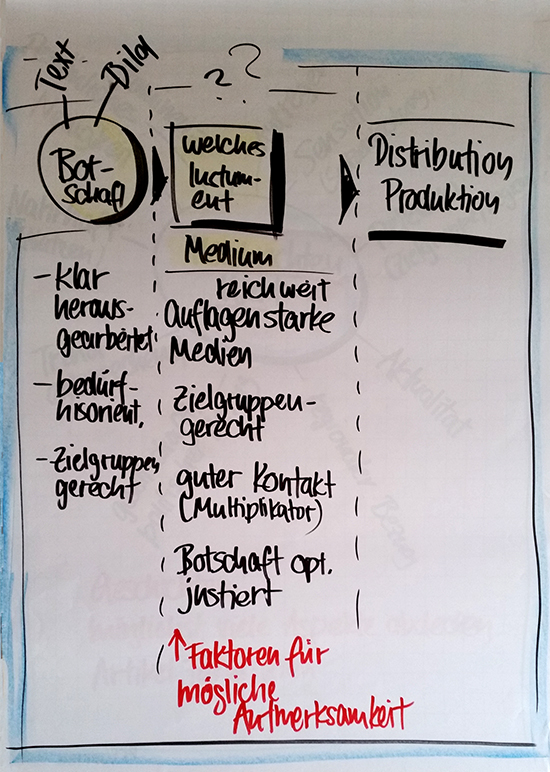 Text Bild
??
Bot-
schaft
welches
Instrum-
ent
Distribution
Produktion
- klar
heraus-
gearbeitet
- bedürf-
nisorient.
- Zielgruppen
gerecht
Medium
reichweit
Auflagenstarke
Medien
Zielgruppen-
gerecht
guter Kontakt
(Multiplikator)
Botschaft opt.
justiert
↑ Faktoren für
mögliche
Aufmerksamkeit
Aktualität